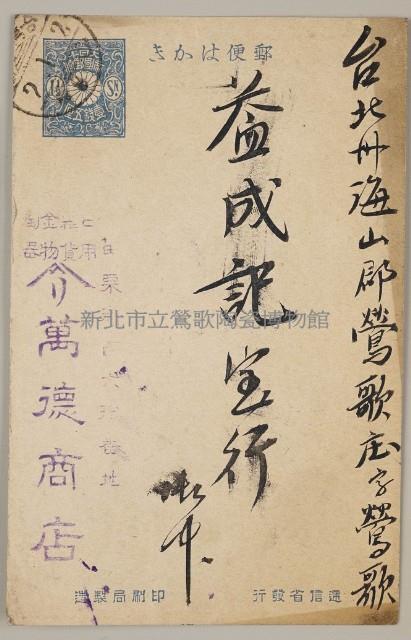 郵便はかき
台北州海山郡鶯歌庄字鶯歌
益成記宝行
御中
用貨物器
栗
番地
萬德商店
新北市立鶯歌陶瓷博物館
遞信省發行
印刷局製造